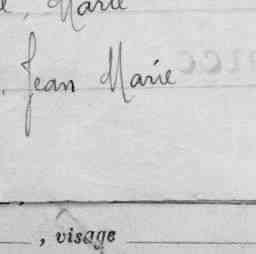 , Marie
Jean Marie
, visage